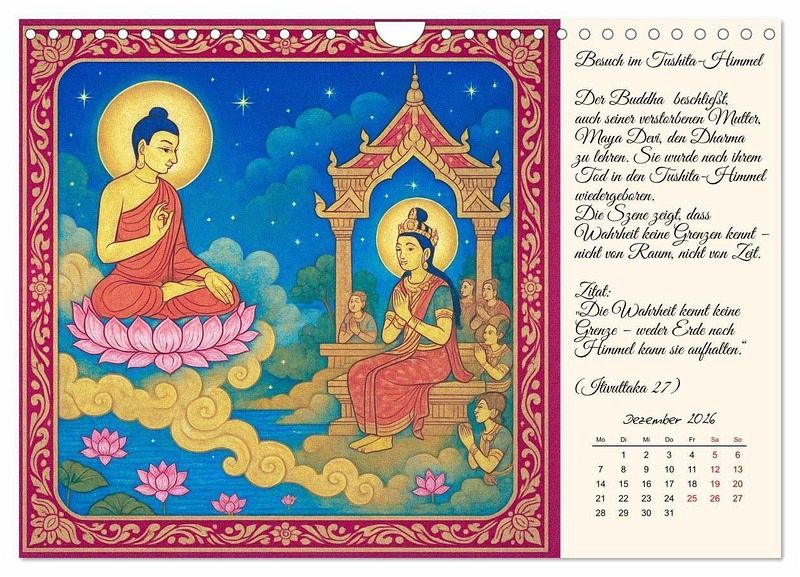 Besuch im Tushita-Himmel
Der Buddha beschließt,
auch seiner verstorbenen Mutter,
Maya Devi, den Dharma
zu lehren. Sie wurde nach ihrem
Tod in den Tushita-Himmel
wiedergeboren.
Die Szene zeigt, dass
Wahrheit keine Grenzen kennt –
nicht von Raum, nicht von Zeit.
Zitat:
„Die Wahrheit kennt keine
Grenze – weder Erde noch
Himmel kann sie aufhalten.“
(Itivuttaka 27)
Dezember 2026
Mo Di Mi Do Fr Sa So
1 2 3 4 5 6
7 8 9 10 11 12 13
14 15 16 17 18 19 20
21 22 23 24 25 26 27
28 29 30 31